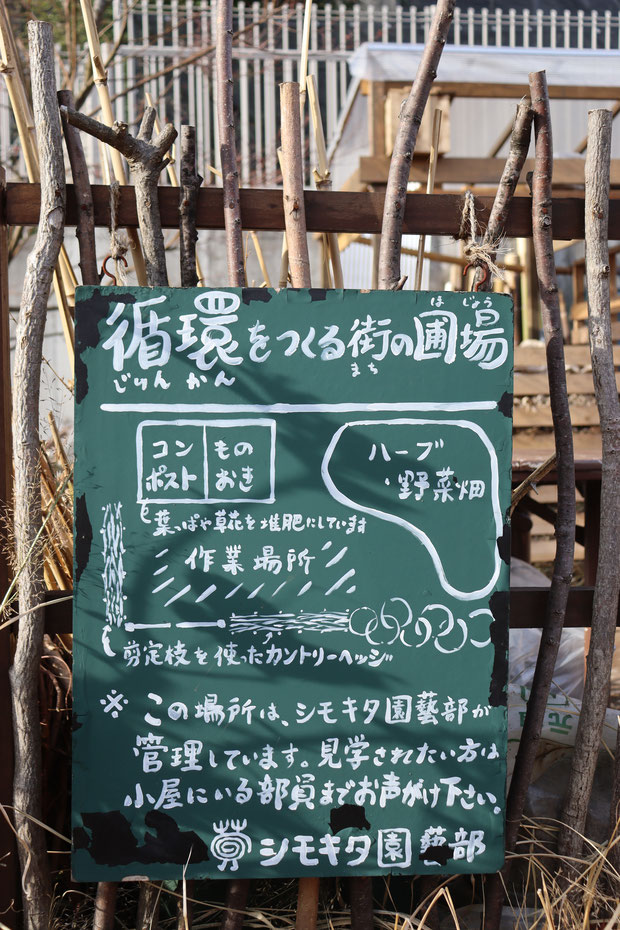 ほじょう
循環をつくる街の圃場
じゅんかん まち
コン
ポスト
もの
おき
ハーブ
・野菜畑
葉っぱや草花を堆肥にしています
作業場所
剪定枝を使ったカントリーヘッジ
※ この場所は、シモキタ園藝部が
管理しています。見学されたい方は
小屋にいる部員までお声がけ下さい。
シモキタ園藝部